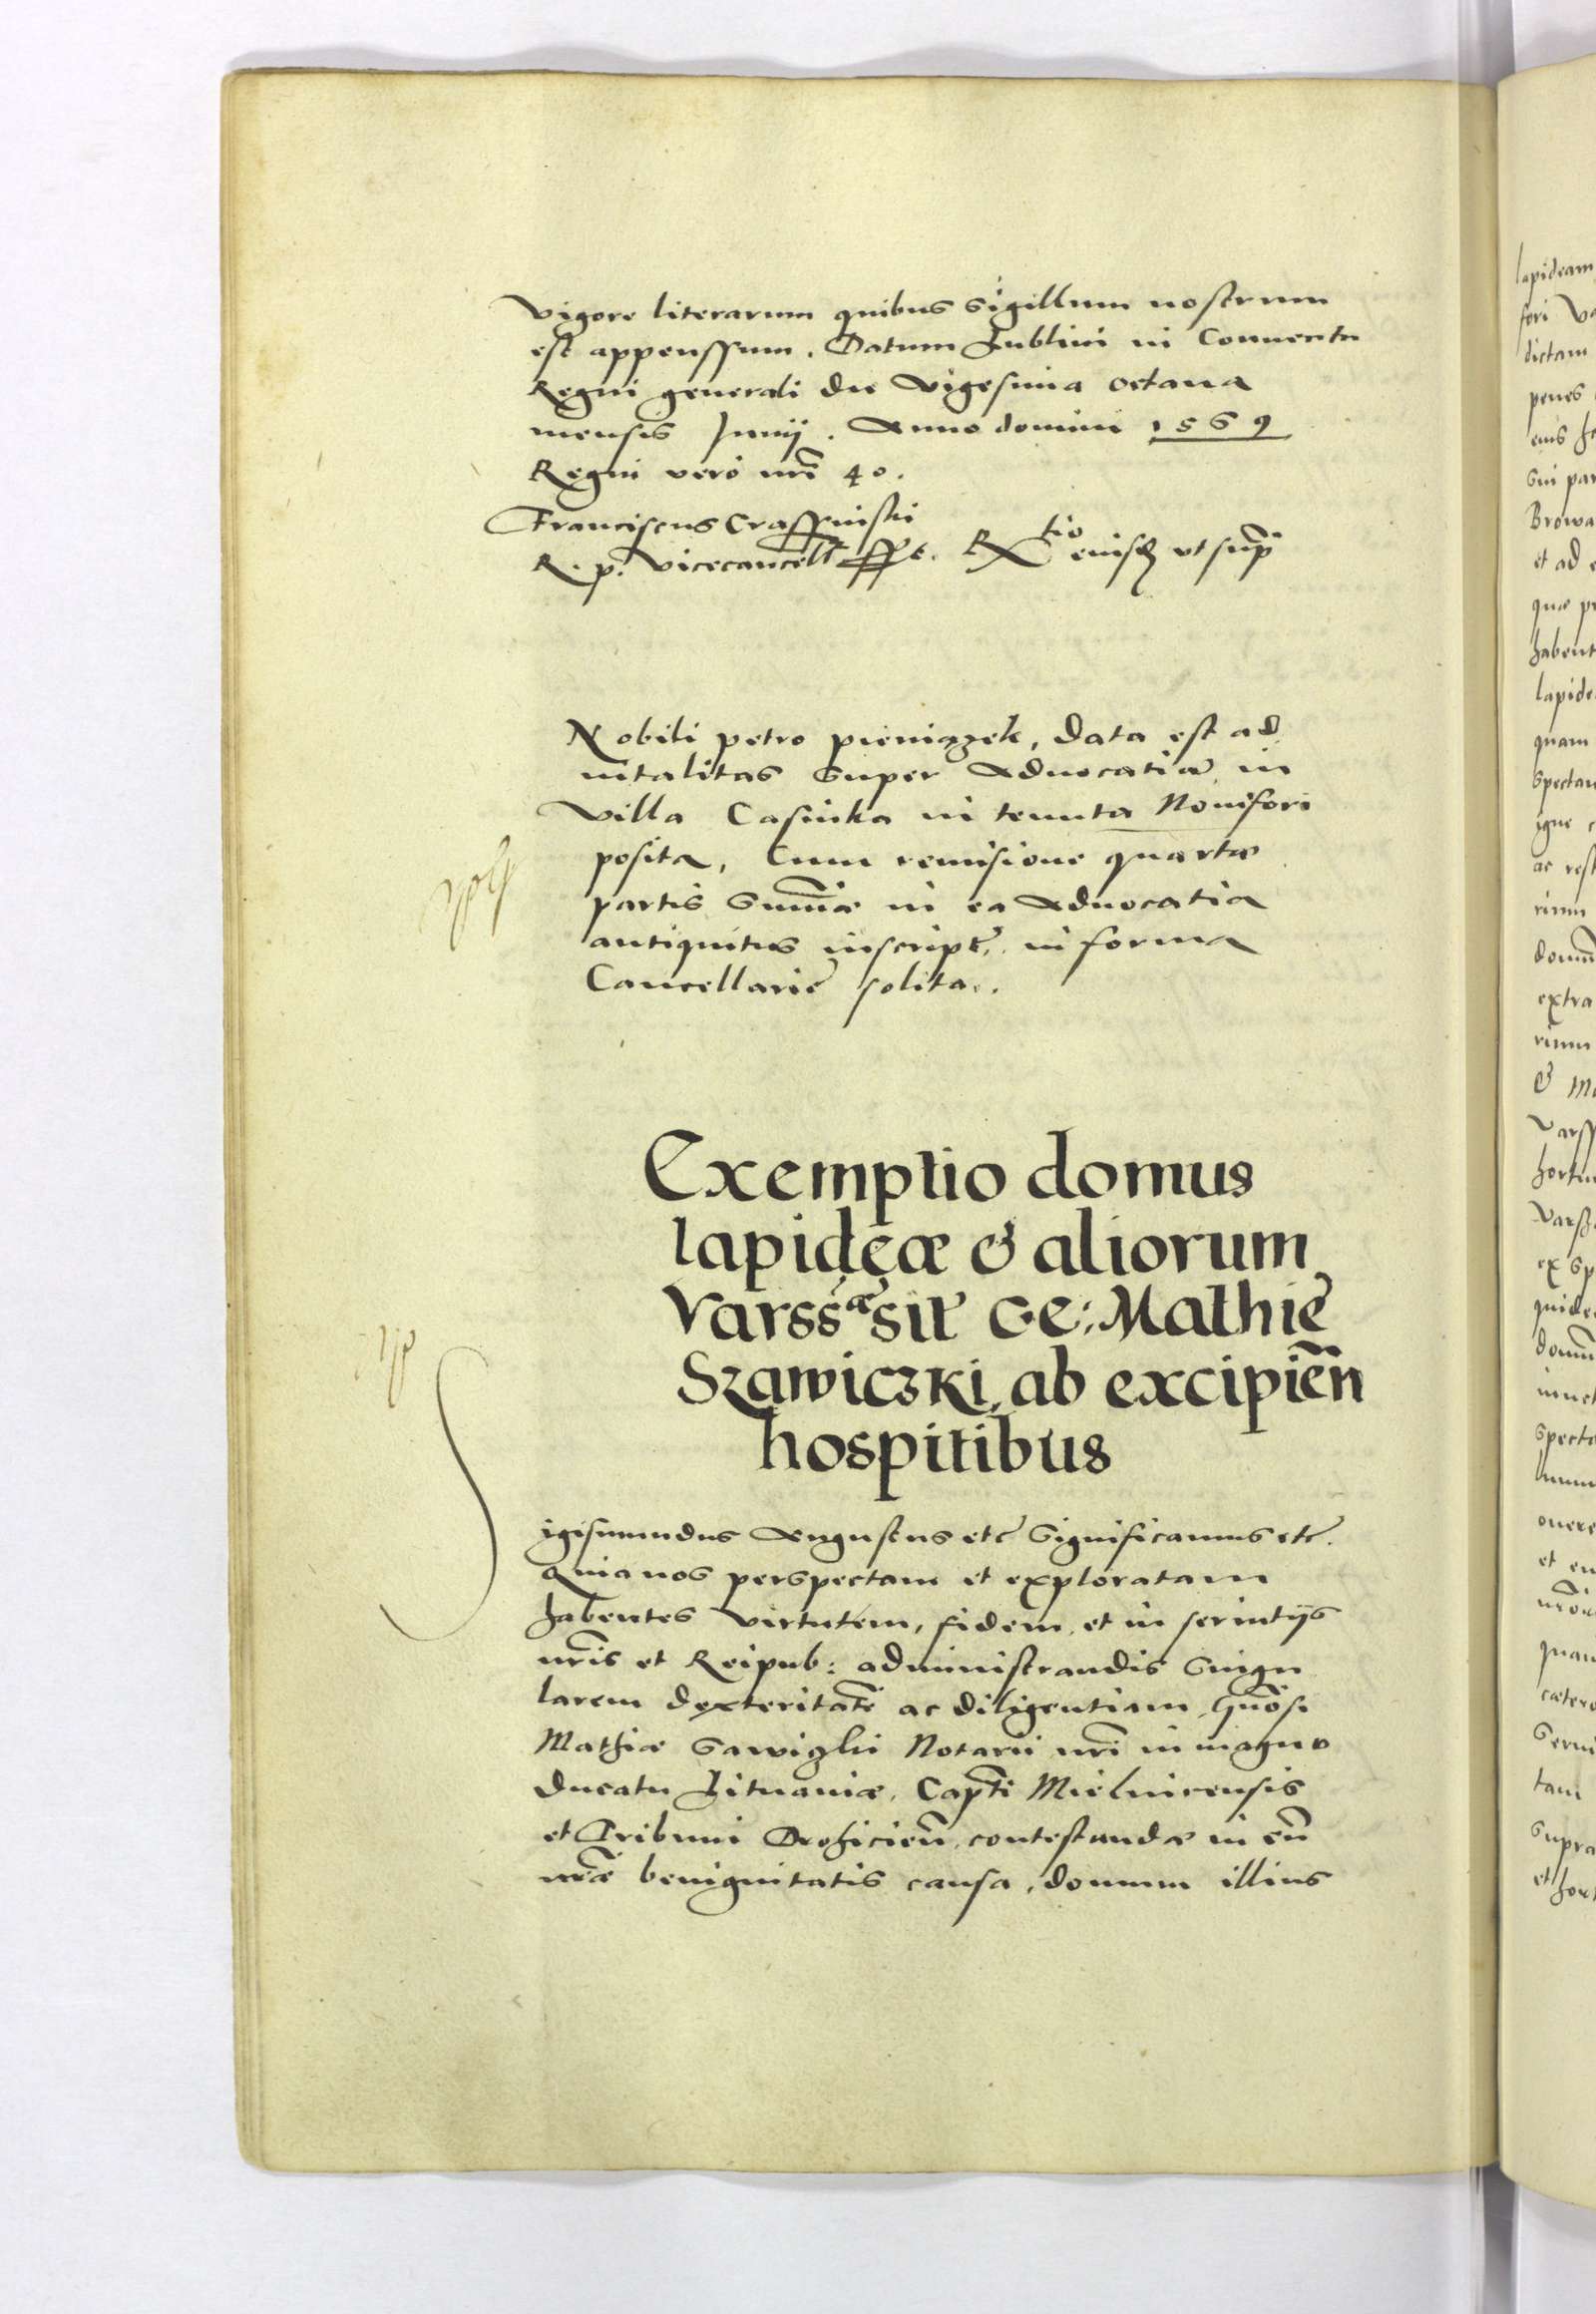 Vigore literarum quibus Sigillum nostrum
est appenssum. Datum Lublini in Conventu
Regni generali die Vigesima octava
mensis Junii. Anno domini 1569
Regni vero nri 40.
Franciscus Crassinski
R. p. Vicecancell sspt. Rtio eiusd ut supra
Nobili petro pieniązek, data est ad
vitalitas super Advocatia in
Villa Casinka in tenuta Novifori
posita, Cum remisione quartæ
partis Summæ in ea Advocatia
antiquitus inscriptę, in forma
Cancellarię solita.
Exemptio domus
lapideæ & aliorum
Varssæ sit G: Mathię
Szawiczki, ab excipien
hospitibus
Sigismundus Augustus etc Significamus etc.
Quia nos perspectam et exploratam
habentes virtutem, fidem, et in servitijs
nris et Reipub: administrandis singu
larem dexteritate ac diligentiam, Gnosi
Mathiæ Sawiczki Notarii nri in magno
ducatu Lituaniæ, Capti Mielnicensis
et Tribuni Drohicien, contestandæ in eu
nræ benignitatis causa, domum illius
lapideam
dictam
penes
Browa
et ad
habent
lapide
quam
ac rest
extra
& Ma
Supra